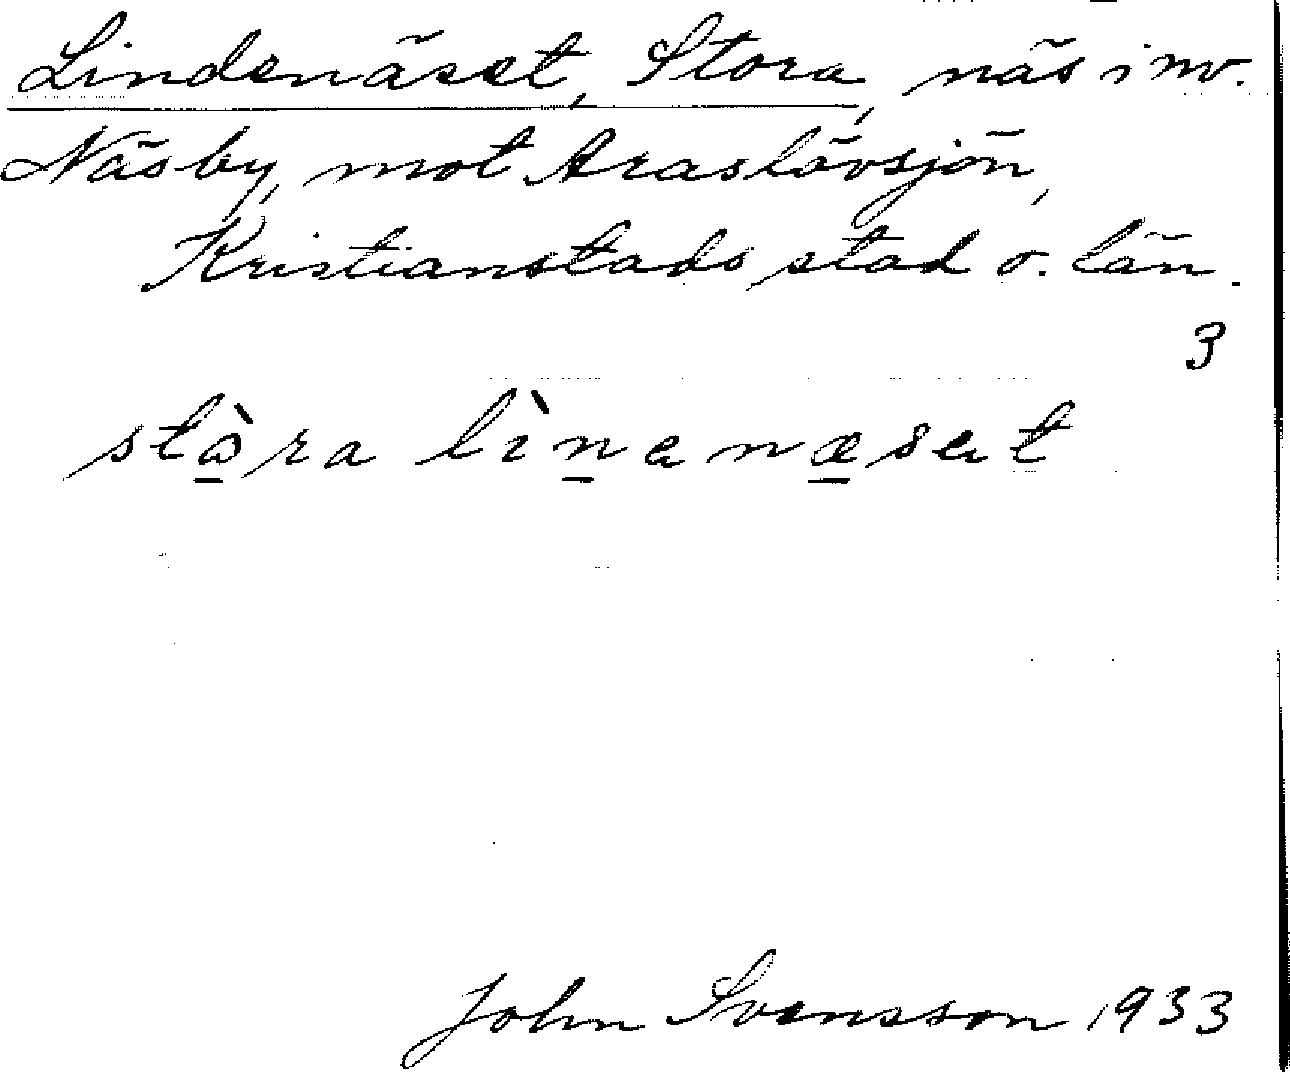 Lindenäset, Stora, näs i nv.
Näsby, mot Araslövsjön,
Kristianstads stad o. län.
3
stòra lìnenæset
John Svensson 1933